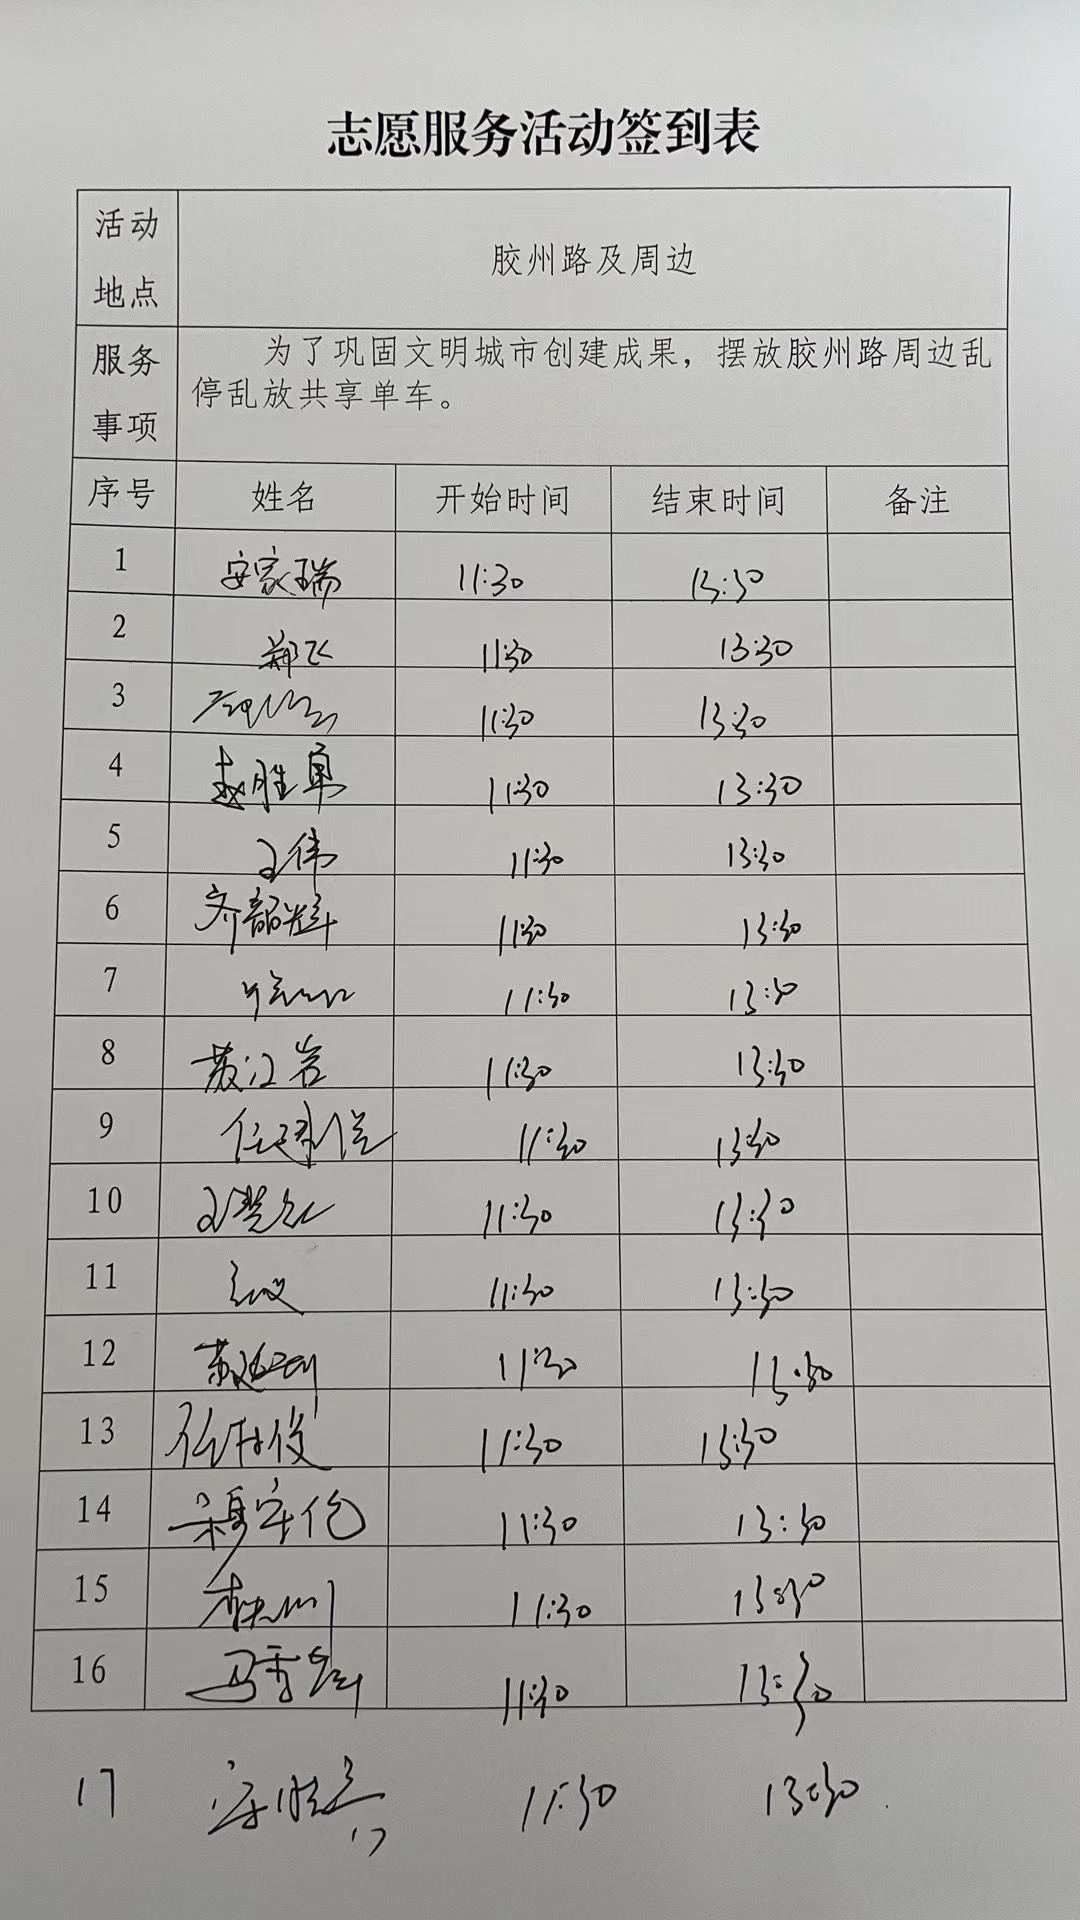 志愿服务活动签到表
活动地点 胶州路及周边
服务事项 为了巩固文明城市创建成果，摆放胶州路周边乱
停乱放共享单车。
序号 姓名 开始时间 结束时间 备注
1 安家瑞 11:30 13:30
2 郑飞 11:30 13:30
3 11:30 13:30
4 赵胜军 11:30 13:30
5 王伟 11:30 13:30
6 齐韶辉 11:30 13:30
7 11:30 13:30
8 11:30 13:30
9 11:30 13:30
10 11:30 13:30
11 11:30 13:30
12 11:30 13:30
13 11:30 13:30
14 11:30 13:30
15 11:30 13:30
16 11:30 13:30
17 11:30 13:30
17